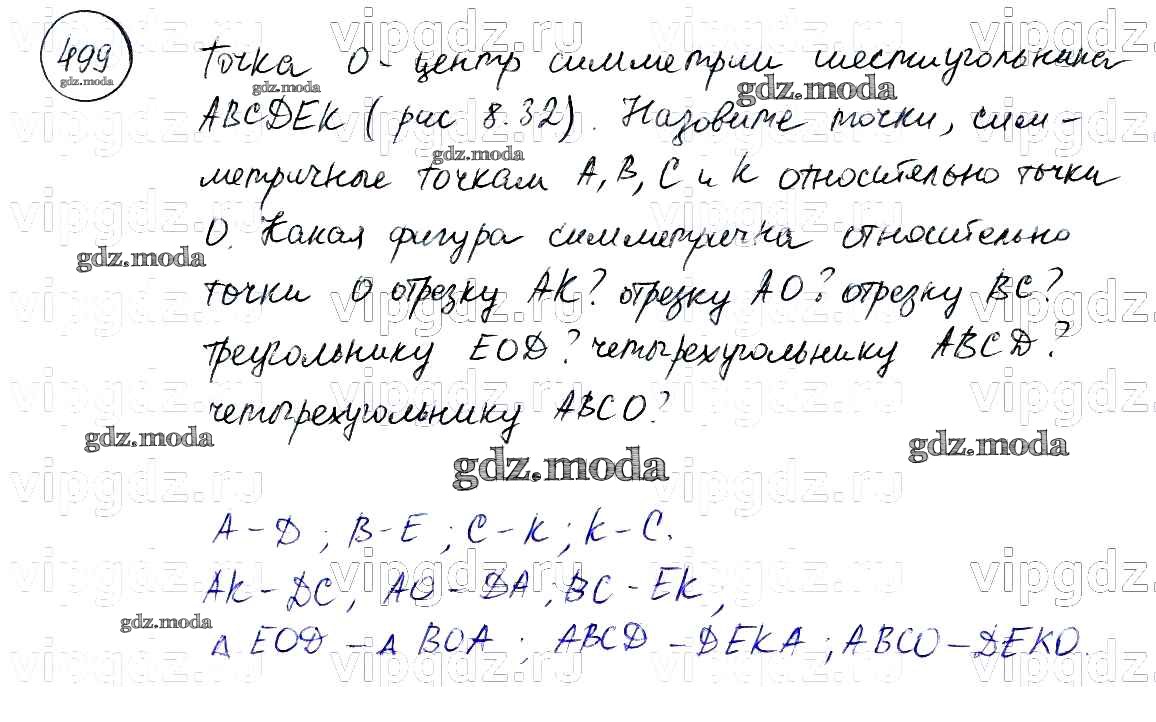 499
Точка О - центр симметрии шестиугольника
ABCDEK (рис 8.32). Назовите точки, сим-
метричные точкам А, В, С и К относительно точки
О. Какая фигура симметрична относительно
точки О отрезку АК? отрезку АО? отрезку ВС?
треугольнику EOD? четырехугольнику ABCD?
четырехугольнику ABCO?
gdz.moda
A - D ; B - E ; C - K ; K - C.
AK - DC, AO - DA ; BC - EK,
Δ EOD - Δ BOA ; ABCD - DEKA ; ABCO - DEKO.
vipgdz.ru